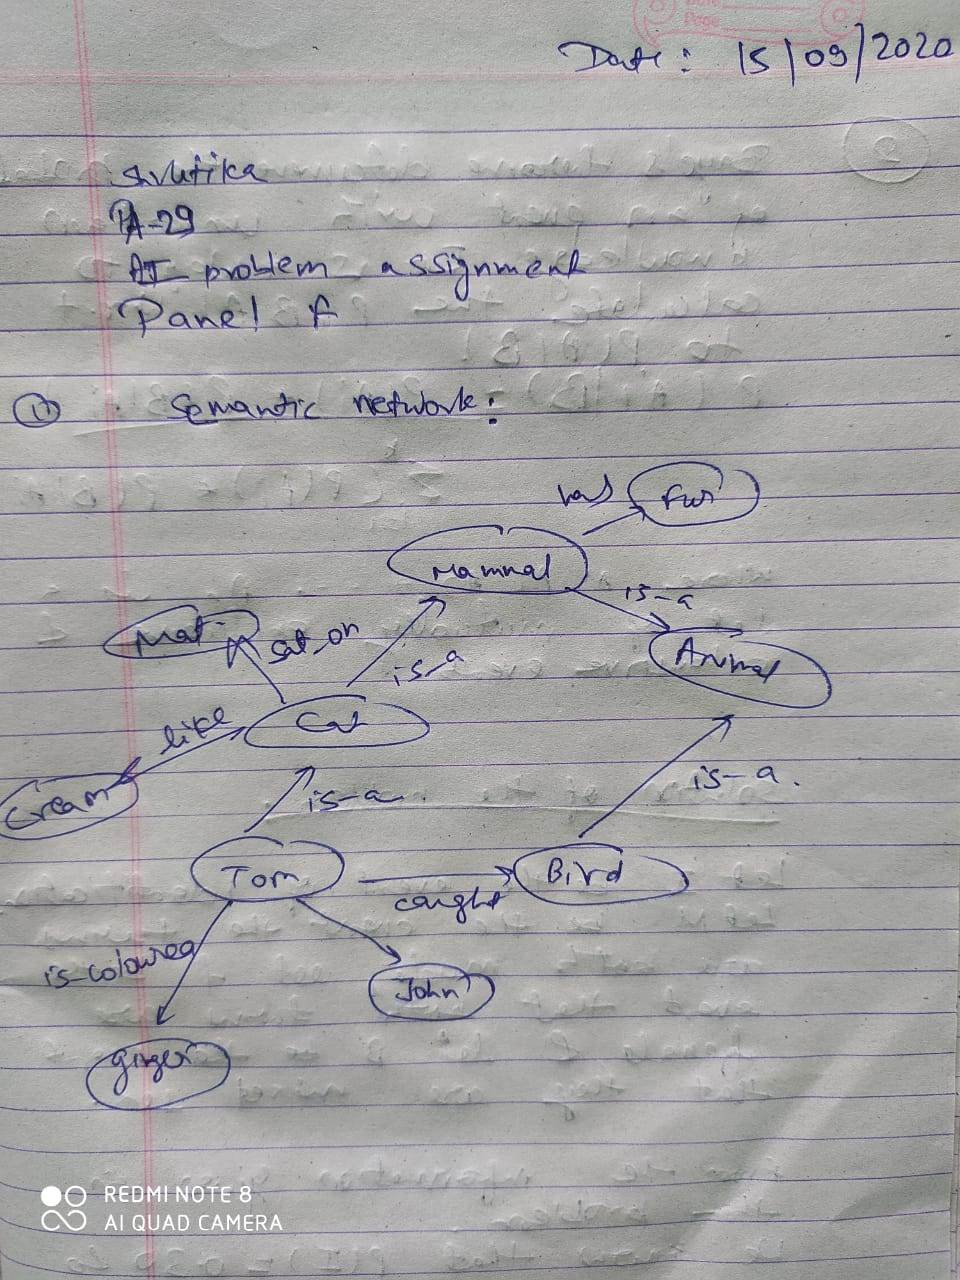 Date: 15/09/2020
Shrutika
PA-29
AI problem assignment
Panel A
① Semantic network:
has
Fur
Mammal
is-a
Mat
sat_on
is-a
Animal
like
Cat
Cream
is-a
is-a.
Tom
Bird
caught
is-coloured
John
ginger
REDMI NOTE 8
AI QUAD CAMERA